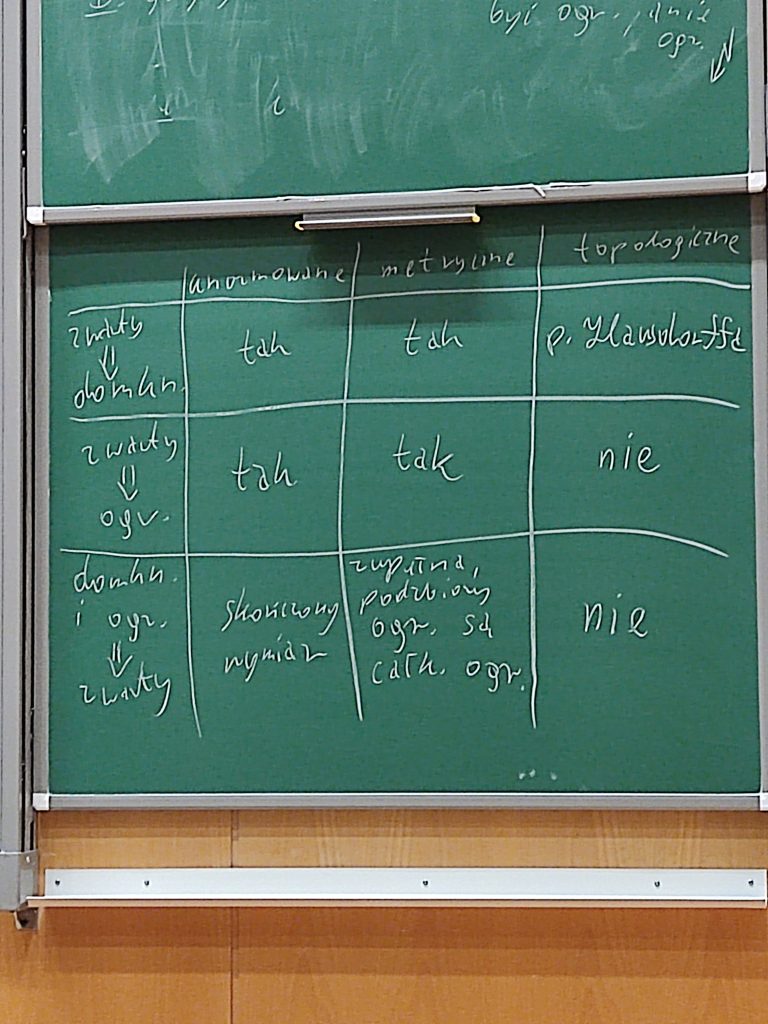 być ogr., 
ogr.
k
unormowane metryczne topologiczne
zwarty
⇓
domkn.
tak tak p. Hausdorffa
zwarty
⇓
ogr.
tak tak nie
domkn.
i ogr.
⇓
zwarty
skończony
wymiar
zupełna,
podzbiory
ogr. są
całk. ogr.
nie